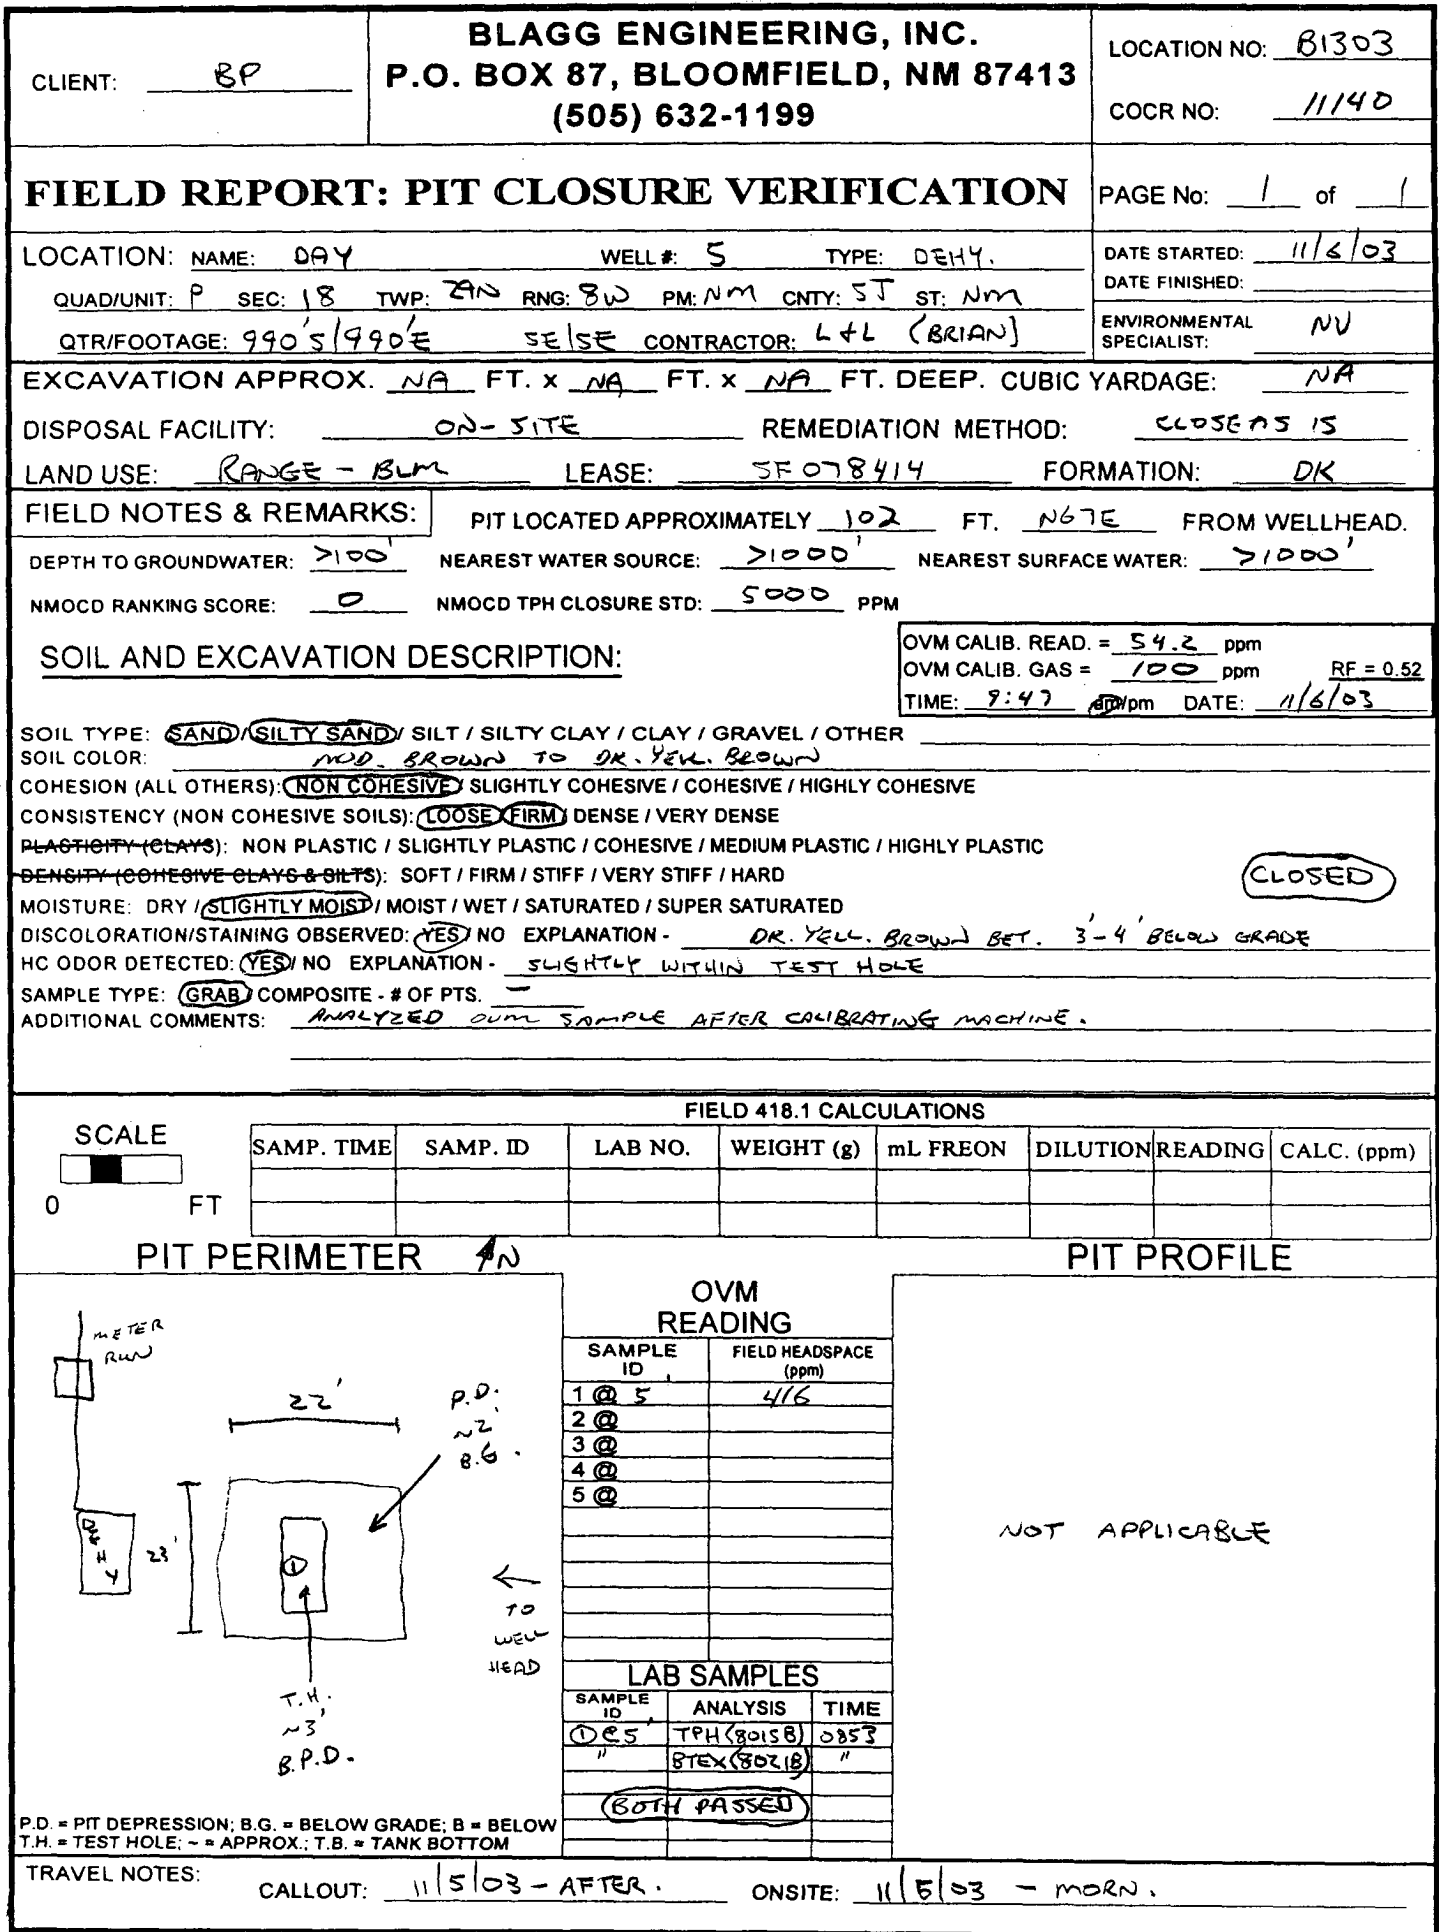 BLAGG ENGINEERING, INC.
P.O. BOX 87, BLOOMFIELD, NM 87413
(505) 632-1199
CLIENT: BP
LOCATION NO: B1303
COCR NO: 11140
FIELD REPORT: PIT CLOSURE VERIFICATION
PAGE No: 1 of 1
LOCATION: NAME: DAY WELL #: 5 TYPE: DEHY.
QUAD/UNIT: P SEC: 18 TWP: 29N RNG: 8W PM: NM CNTY: SJ ST: NM
QTR/FOOTAGE: 990'S/990'E SE/SE CONTRACTOR: L+L (BRIAN)
DATE STARTED: 11/6/03
DATE FINISHED:
ENVIRONMENTAL SPECIALIST: NV
EXCAVATION APPROX. NA FT. x NA FT. x NA FT. DEEP. CUBIC YARDAGE: NA
DISPOSAL FACILITY: ON-SITE REMEDIATION METHOD: CLOSE AS IS
LAND USE: RANGE - BLM LEASE: SF 078414 FORMATION: DK
FIELD NOTES & REMARKS: PIT LOCATED APPROXIMATELY 102 FT. N67E FROM WELLHEAD.
DEPTH TO GROUNDWATER: >100' NEAREST WATER SOURCE: >1000' NEAREST SURFACE WATER: >1000'
NMOCD RANKING SCORE: 0 NMOCD TPH CLOSURE STD: 5000 PPM
SOIL AND EXCAVATION DESCRIPTION:
OVM CALIB. READ. = 54.2 ppm
OVM CALIB. GAS = 100 ppm RF = 0.52
TIME: 9:47 am/pm DATE: 11/6/03
SOIL TYPE: SAND / SILTY SAND / SILT / SILTY CLAY / CLAY / GRAVEL / OTHER
SOIL COLOR: MOD. BROWN TO DK. YELL. BROWN
COHESION (ALL OTHERS): NON COHESIVE / SLIGHTLY COHESIVE / COHESIVE / HIGHLY COHESIVE
CONSISTENCY (NON COHESIVE SOILS): LOOSE / FIRM / DENSE / VERY DENSE
PLASTICITY (CLAYS): NON PLASTIC / SLIGHTLY PLASTIC / COHESIVE / MEDIUM PLASTIC / HIGHLY PLASTIC
DENSITY (COHESIVE CLAYS & SILTS): SOFT / FIRM / STIFF / VERY STIFF / HARD
CLOSED
MOISTURE: DRY / SLIGHTLY MOIST / MOIST / WET / SATURATED / SUPER SATURATED
DISCOLORATION/STAINING OBSERVED: YES / NO EXPLANATION - DK. YELL. BROWN BET. 3'-4' BELOW GRADE
HC ODOR DETECTED: YES / NO EXPLANATION - SLIGHTLY WITHIN TEST HOLE
SAMPLE TYPE: GRAB / COMPOSITE - # OF PTS. —
ADDITIONAL COMMENTS: ANALYZED OVM SAMPLE AFTER CALIBRATING MACHINE.
FIELD 418.1 CALCULATIONS
SCALE
0 FT
SAMP. TIME SAMP. ID LAB NO. WEIGHT (g) mL FREON DILUTION READING CALC. (ppm)
PIT PERIMETER N
PIT PROFILE
METER RUN
22'
P.D. ~2' B.G.
DEHY
23'
1
TO WELL HEAD
T.H. ~3' B.P.D.
OVM READING
SAMPLE ID FIELD HEADSPACE (ppm)
1 @ 5' 416
2 @
3 @
4 @
5 @
NOT APPLICABLE
LAB SAMPLES
SAMPLE ID ANALYSIS TIME
① @ 5' TPH (8015B) 0853
" BTEX (8021B) "
BOTH PASSED
P.D. = PIT DEPRESSION; B.G. = BELOW GRADE; B = BELOW
T.H. = TEST HOLE; ~ = APPROX.; T.B. = TANK BOTTOM
TRAVEL NOTES: CALLOUT: 11/5/03 - AFTER. ONSITE: 11/6/03 - MORN.